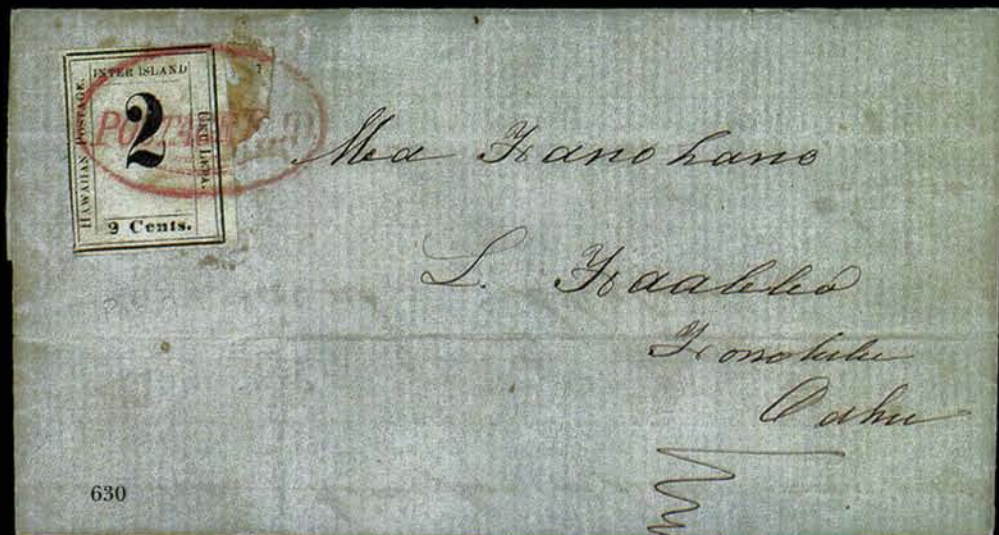 INTER ISLAND
HAWAIIAN POSTAGE.
UKU LETA.
2
2 Cents.
Mea Hanohano
L. Haalelea
Honolulu
Oahu
630